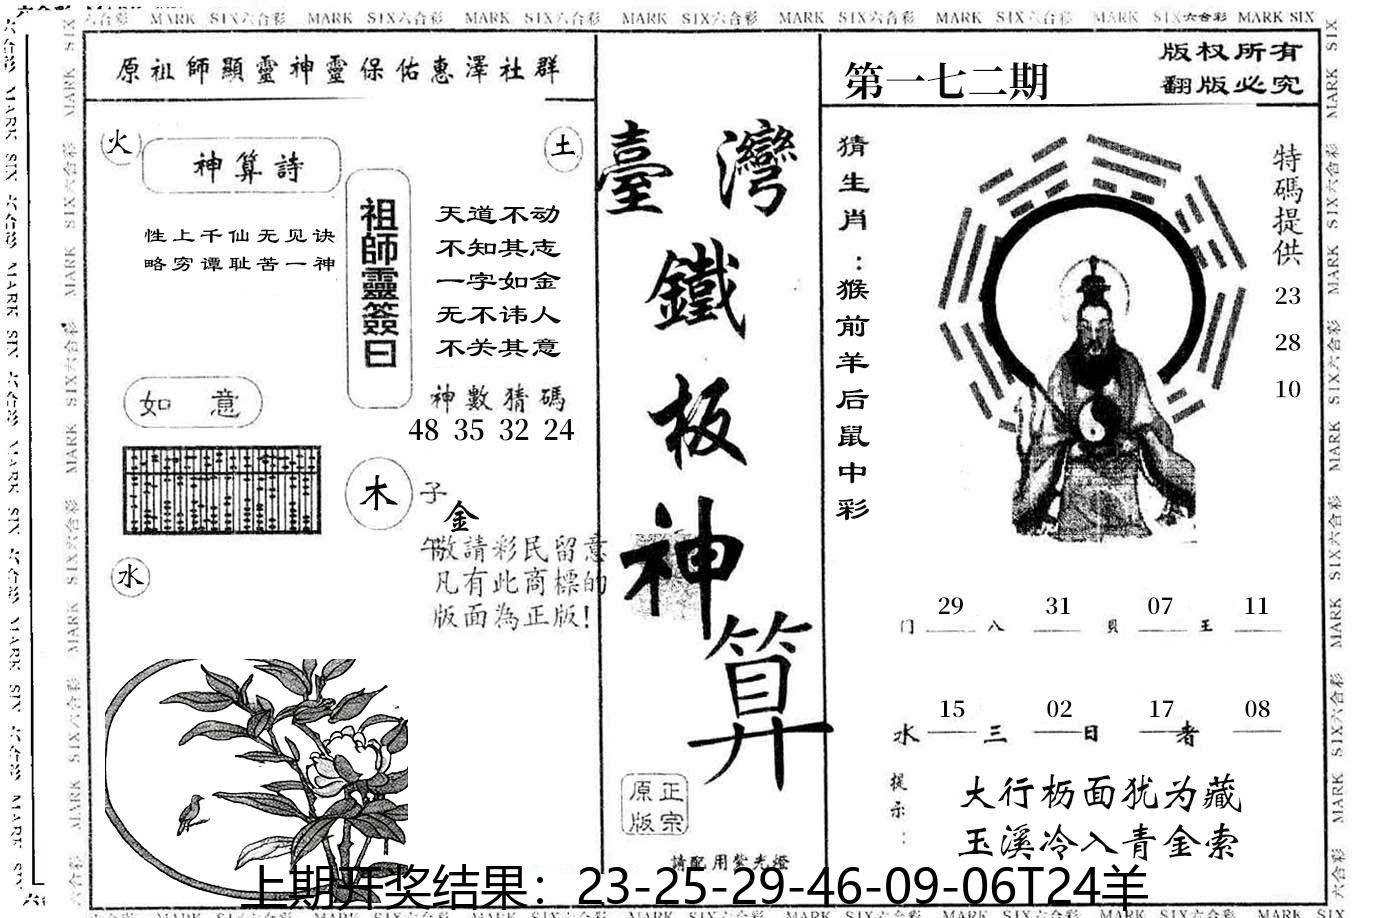 MARK SIX六合彩 MARK SIX六合彩 MARK SIX六合彩 MARK SIX六合彩 MARK SIX六合彩 MARK SIX六合彩 MARK SIX六合彩 MARK SIX
原祖師顯靈神靈保佑惠澤社群
火
神算詩
土
性上千仙无见诀
略穷谭耻苦一神
祖師靈簽曰
天道不动
不知其志
一字如金
无不讳人
不关其意
神數猜碼
48 35 32 24
如意
木
子
金
午
水
敬請彩民留意
凡有此商標的
版面為正版!
臺灣
鐵
板
神
算
正宗
原版
請配用紫光燈
第一七二期
版权所有
翻版必究
猜生肖:猴前羊后鼠中彩
特碼提供
23
28
10
29 31 07 11
门 八 貝 王
15 02 17 08
水 三 日 者
提示:
大行栃面犹为藏
玉溪冷入青金索
上期开奖结果：23-25-29-46-09-06T24羊